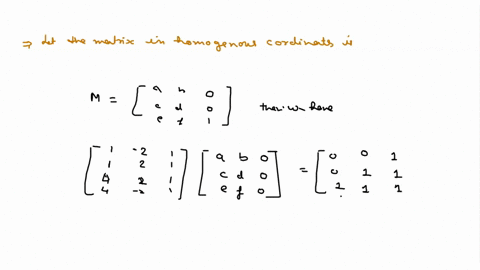 ⇒ Let the matrix in homogenous cordinats is
M = [ a b 0
c d 0
e f 1 ] then we have
[ 1 -2 1
1 2 1
4 2 1
4 -2 1 ] [ a b 0
c d 0
e f 0 ] = [ 0 0 1
0 1 1
1 1 1 ]